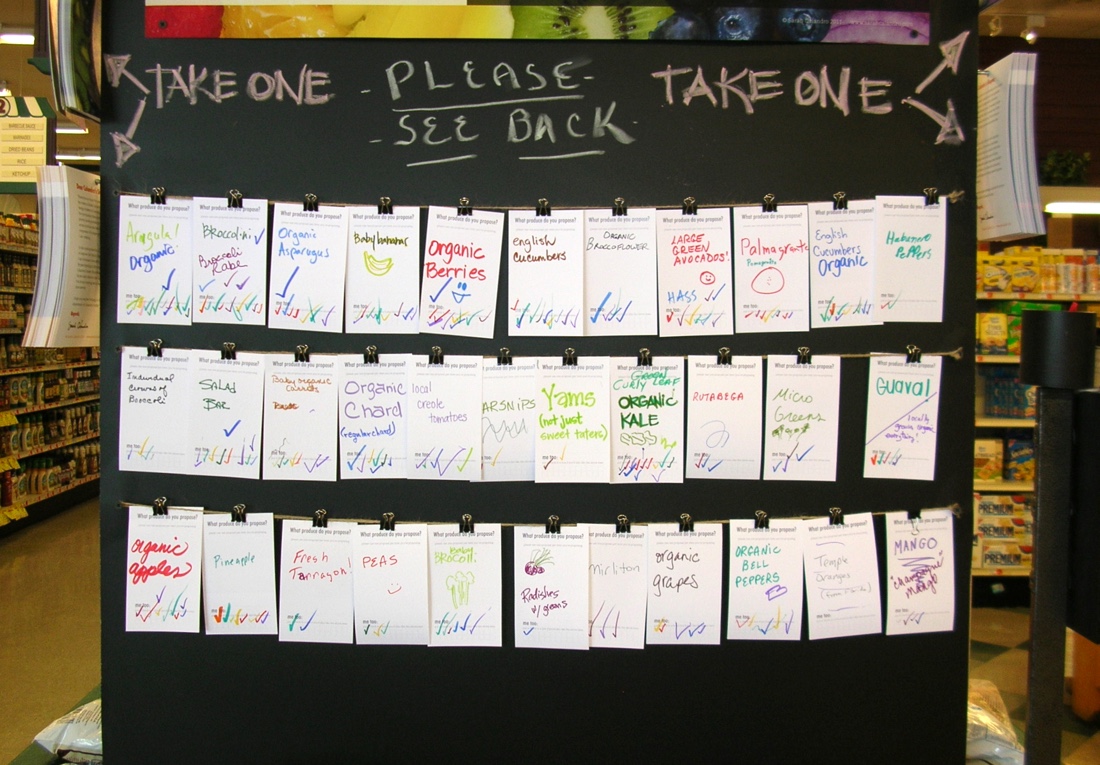 TAKE ONE
- PLEASE -
- SEE BACK -
TAKE ONE
What produce do you propose?
Arugula!
Organic
me too:
What produce do you propose?
Broccolini
Broccoli
Rabe
me too:
What produce do you propose?
Organic
Asparagus
me too:
What produce do you propose?
Baby bananas
me too:
What produce do you propose?
Organic
Berries
me too:
What produce do you propose?
english
cucumbers
me too:
What produce do you propose?
ORGANIC
BROCCOFLOWER
me too:
What produce do you propose?
LARGE
GREEN
AVOCADOS!
HASS
me too:
What produce do you propose?
Palmagranite
Pomegranate
me too:
What produce do you propose?
English
Cucumbers
Organic
me too:
What produce do you propose?
Habenero
Peppers
What produce do you propose?
Individual
crowns of
Borocoli
me too:
What produce do you propose?
SALAD
BAR
me too:
What produce do you propose?
Baby organic
Carrots
me too:
What produce do you propose?
Organic
Chard
(regular chard)
me too:
What produce do you propose?
local
creole
tomatoes
me too:
What produce do you propose?
ARSNIPS
What produce do you propose?
Yams
(not just
sweet taters)
me too:
GREEN
CURLY LEAF
ORGANIC
KALE
me too:
What produce do you propose?
RUTABEGA
me too:
What produce do you propose?
Micro
Greens
me too:
What produce do you propose?
GUAVA!
locally
grown organic
everything!
me too:
What produce do you propose?
organic
apples
me too:
What produce do you propose?
Pineapple
me too:
What produce do you propose?
Fresh
Tarragon!
me too:
What produce do you propose?
PEAS
me too:
What produce do you propose?
baby
BROCOLI
me too:
What produce do you propose?
Radishes
w/ greens
me too:
What produce do you propose?
mirliton
What produce do you propose?
organic
grapes
me too:
What produce do you propose?
ORGANIC
BELL
PEPPERS
me too:
What produce do you propose?
Temple
Oranges
(from Florida)
me too:
What produce do you propose?
MANGO
"champagne"
mango
me too:
BARBECUE SAUCE
DRIED BEANS
RICE
KETCHUP
PREMIUM
PREMIUM